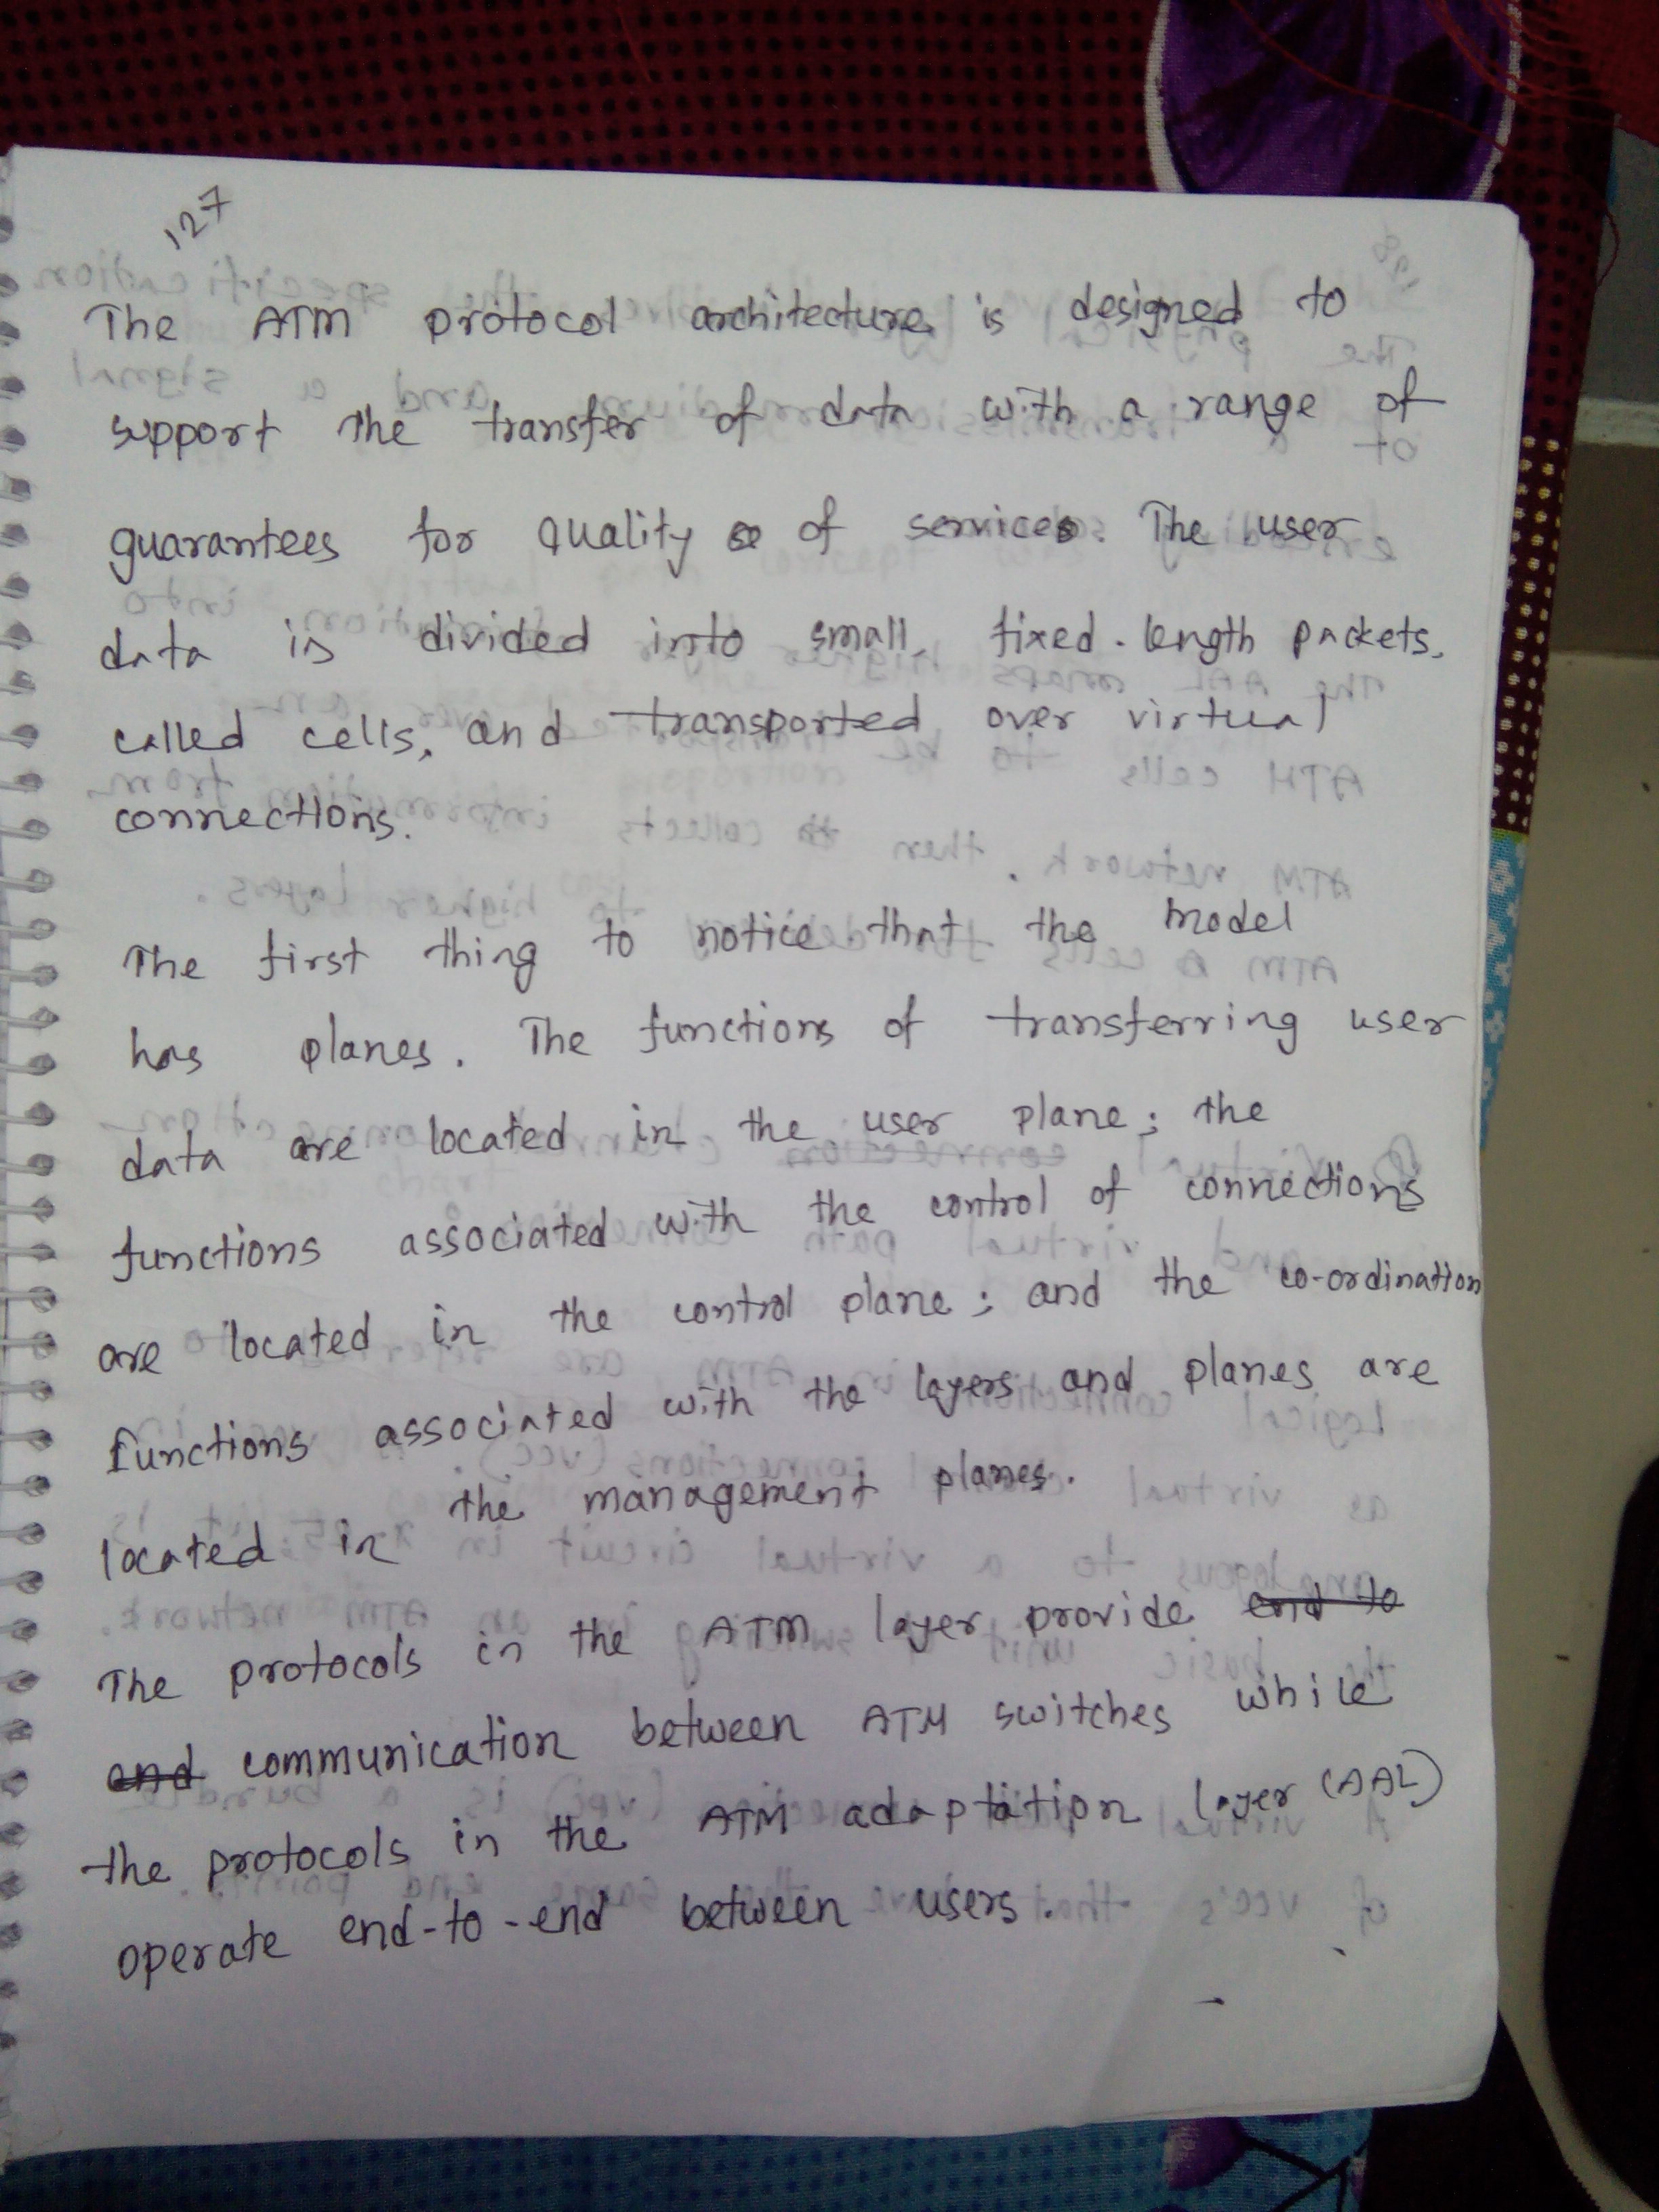 127
The ATM protocol architecture is designed to
support the transfer of data with a range of
guarantees for quality of services. The user
data is divided into small, fixed-length packets,
called cells, and transported over virtual
connections.
The first thing to notice that the model
has planes. The functions of transferring user
data are located in the user plane; the
functions associated with the control of connections
are located in the control plane; and the co-ordination
functions associated with the layers and planes are
located in the management planes.
The protocols in the ATM layer provide end to
end communication between ATM switches while
the protocols in the ATM adaptation layer (AAL)
operate end-to-end between users.